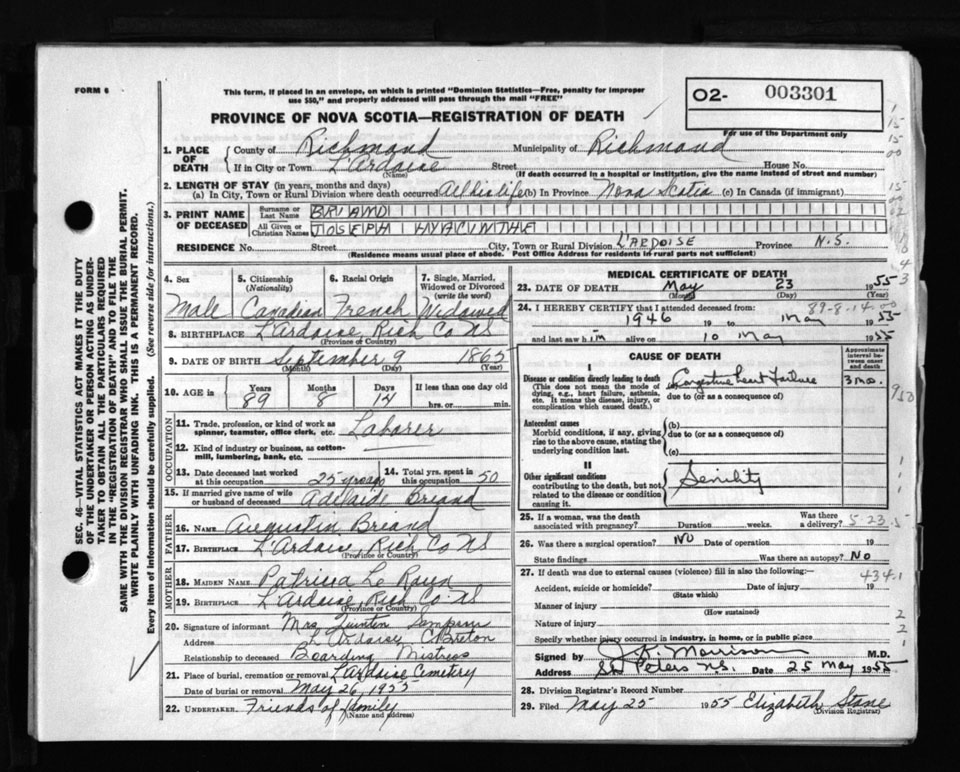 FORM 6
This form, if placed in an envelope, on which is printed "Dominion Statistics—Free, penalty for improper
use $50," and properly addressed will pass through the mail "FREE"
02- 003301
PROVINCE OF NOVA SCOTIA—REGISTRATION OF DEATH
For use of the Department only
1. PLACE OF DEATH County of Richmond Municipality of Richmond
If in City or Town L'Ardoise Street House No.
(Name) (If death occurred in a hospital or institution, give the name instead of street and number)
2. LENGTH OF STAY (in years, months and days)
(a) In City, Town or Rural Division where death occurred all his life (b) In Province Nova Scotia (c) In Canada (if immigrant)
3. PRINT NAME OF DECEASED Surname or Last Name BRIAND
All Given or Christian Names JOSEPH HYACINTHE
RESIDENCE No. Street City, Town or Rural Division L'ARDOISE Province N.S.
(Residence means usual place of abode. Post Office Address for residents in rural parts not sufficient)
4. Sex 5. Citizenship (Nationality) 6. Racial Origin 7. Single, Married, Widowed or Divorced (write the word)
Male Canadian French Widowed
8. BIRTHPLACE L'Ardoise Rich Co NS
(Province or Country)
9. DATE OF BIRTH September 9 1865
(Month) (Day) (Year)
10. AGE in Years Months Days If less than one day old
89 8 14 hrs. or min.
OCCUPATION
11. Trade, profession, or kind of work as spinner, teamster, office clerk, etc. Laborer
12. Kind of industry or business, as cotton-mill, lumbering, bank, etc.
13. Date deceased last worked at this occupation 25 yrs ago 14. Total yrs. spent in this occupation 50
15. If married give name of wife or husband of deceased Adelaide Briand
FATHER
16. NAME Augustin Briand
17. BIRTHPLACE L'Ardoise Rich Co NS
(Province or Country)
MOTHER
18. MAIDEN NAME Patricia Le
19. BIRTHPLACE L'Ardoise Rich Co NS
(Province or Country)
20. Signature of informant Mrs Quinten Sampson
Address L'Ardoise C Breton
Relationship to deceased Boarding Mistress
21. Place of burial, cremation or removal L'Ardoise Cemetery
Date of burial or removal May 26, 1955
22. UNDERTAKER Friends of family
(Name and address)
MEDICAL CERTIFICATE OF DEATH
23. DATE OF DEATH May 23 1955
(Month) (Day) (Year)
24. I HEREBY CERTIFY that I attended deceased from: 89-8-14-00
1946 19 to May 1955
and last saw him alive on 10 May 1955
CAUSE OF DEATH Approximate interval between onset and death
I
Disease or condition directly leading to death Congestive heart failure 3 mos.
(This does not mean the mode of dying, e.g., heart failure, asthenia, etc. It means the disease, injury, or complication which caused death.
due to (or as a consequence of)
Antecedent causes
Morbid conditions, if any, giving rise to the above cause, stating the underlying condition last.
(b)
due to (or as a consequence of)
(c)
II
Other significant conditions Senility
contributing to the death, but not related to the disease or condition causing it.
25. If a woman, was the death associated with pregnancy? Duration weeks. Was there a delivery? 5 23
26. Was there a surgical operation? NO Date of operation 19
State findings Was there an autopsy? No
27. If death was due to external causes (violence) fill in also the following:— 434.1
Accident, suicide or homicide? Date of injury 19
(State which)
Manner of injury
(How sustained)
Nature of injury
Specify whether injury occurred in industry, in home, or in public place
Signed by Morrison M.D.
Address St Peters N.S. Date 25 May 1955
28. Division Registrar's Record Number
29. Filed May 25 1955 Elizabeth Stone
(Division Registrar)
SEC. 46—VITAL STATISTICS ACT MAKES IT THE DUTY
OF THE UNDERTAKER OR PERSON ACTING AS UNDER-
TAKER TO OBTAIN ALL THE PARTICULARS REQUIRED
IN THE "REGISTRATION OF DEATH" AND TO FILE THE
SAME WITH THE DIVISION REGISTRAR WHO SHALL ISSUE THE BURIAL PERMIT.
WRITE PLAINLY WITH UNFADING INK. THIS IS A PERMANENT RECORD.
Every item of information should be carefully supplied. (See reverse side for instructions.)